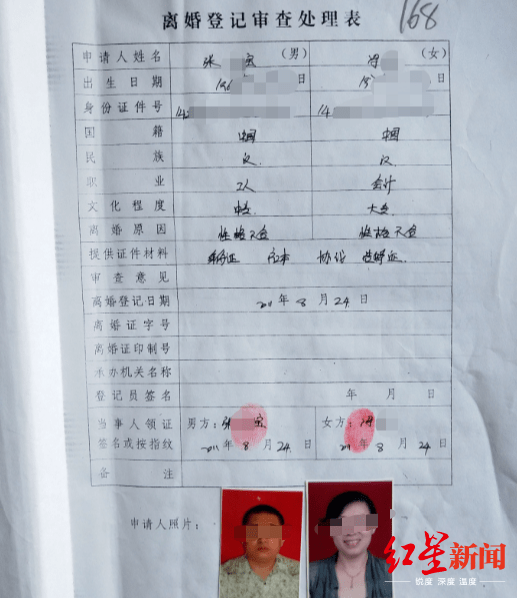 离婚登记审查处理表
168
申请人姓名 张 宝 (男) 冯 (女)
出生日期 196 日 19 日
身份证件号 142 14
国籍 中国 中国
民族 汉 汉
职业 工人 会计
文化程度 中专 大专
离婚原因 性格不合 性格不合
提供证件材料 身份证 户口本 协议 结婚证
审查意见
离婚登记日期 2011年8月24日
离婚证字号
离婚证印制号
承办机关名称
登记员签名 年 月 日
当事人领证 男方：张 宝 女方：冯
签名或按指纹 2011年8月24日 2011年8月24日
备注
申请人照片：
红星新闻
锐度 深度 温度